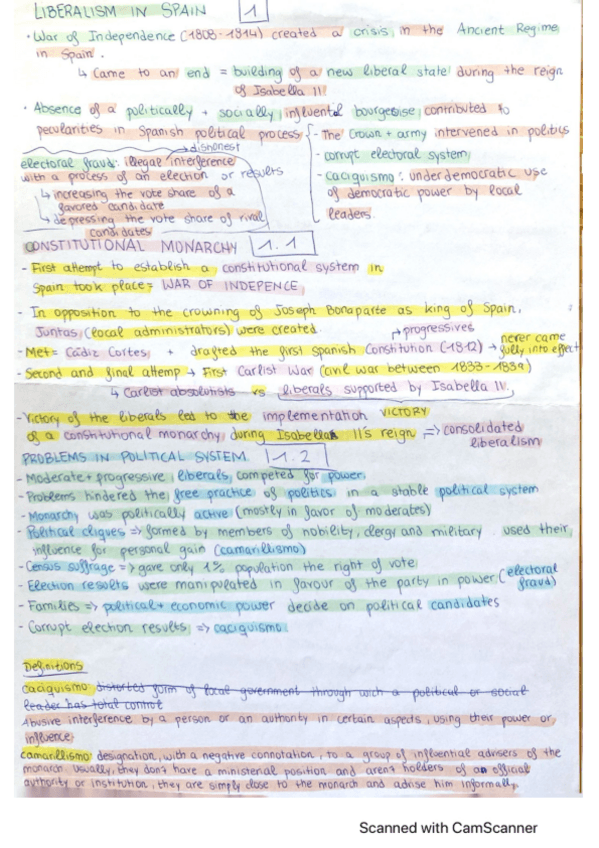 LIBERALISM IN SPAIN 1
· War of Independence (1808-1814) created a crisis in the Ancient Regime
in Spain.
↳ Came to an end = building of a new liberal state during the reign
of Isabella II
· Absence of a politically + socially influental bourgeoisie, contributed to
pecularities in Spanish political process
- The Crown + army intervened in politics
- corrupt electoral system
- caciquismo: underdemocratic use
of democratic power by local
leaders.
→ dishonest
electoral fraud: illegal interference
with a process of an election or results
↳ increasing the vote share of a
favored candidate
↳ depressing the vote share of rival
candidates
CONSTITUTIONAL MONARCHY 1.1
- First attempt to establish a constitutional system in
Spain took place = WAR OF INDEPENCE
- In opposition to the crowning of Joseph Bonaparte as king of Spain,
Juntas (local administrators) were created.
→ progressives
- Met = Cádiz Cortes, + drafted the first spanish Constitution (1812) → never came
fully into effect
- Second and final attemp → First Carlist War (civil war between 1833-1839)
↳ Carlist absolutists vs liberals supported by Isabella IV.
VICTORY
- Victory of the liberals led to the implementation
of a constitutional monarchy during Isabella II's reign => consolidated
liberalism
PROBLEMS IN POLITICAL SYSTEM 1.2
- Moderate + progressive liberals competed for power
- Problems hindered the free practice of politics in a stable political system
- Monarchy was politically active (mostly in favor of moderates)
- Political cliques => formed by members of nobility, clergy and military. used their
influence for personal gain (camarillismo)
- Census suffrage => gave only 1% population the right of vote
- Election results were manipulated in favour of the party in power (electoral
fraud)
- Families => political + economic power decide on political candidates
- Corrupt election results => caciquismo
Definitions
caciquismo distorted form of local government through wich a political or social
leader has total control
Abusive interference by a person or an authority in certain aspects, using their power or
influence
camarillismo: designation, with a negative connotation, to a group of influential advisers of the
monarch usually, they don't have a ministerial position and aren't holders of an official
authority or institution, they are simply close to the monarch and advise him informally.
Scanned with CamScanner